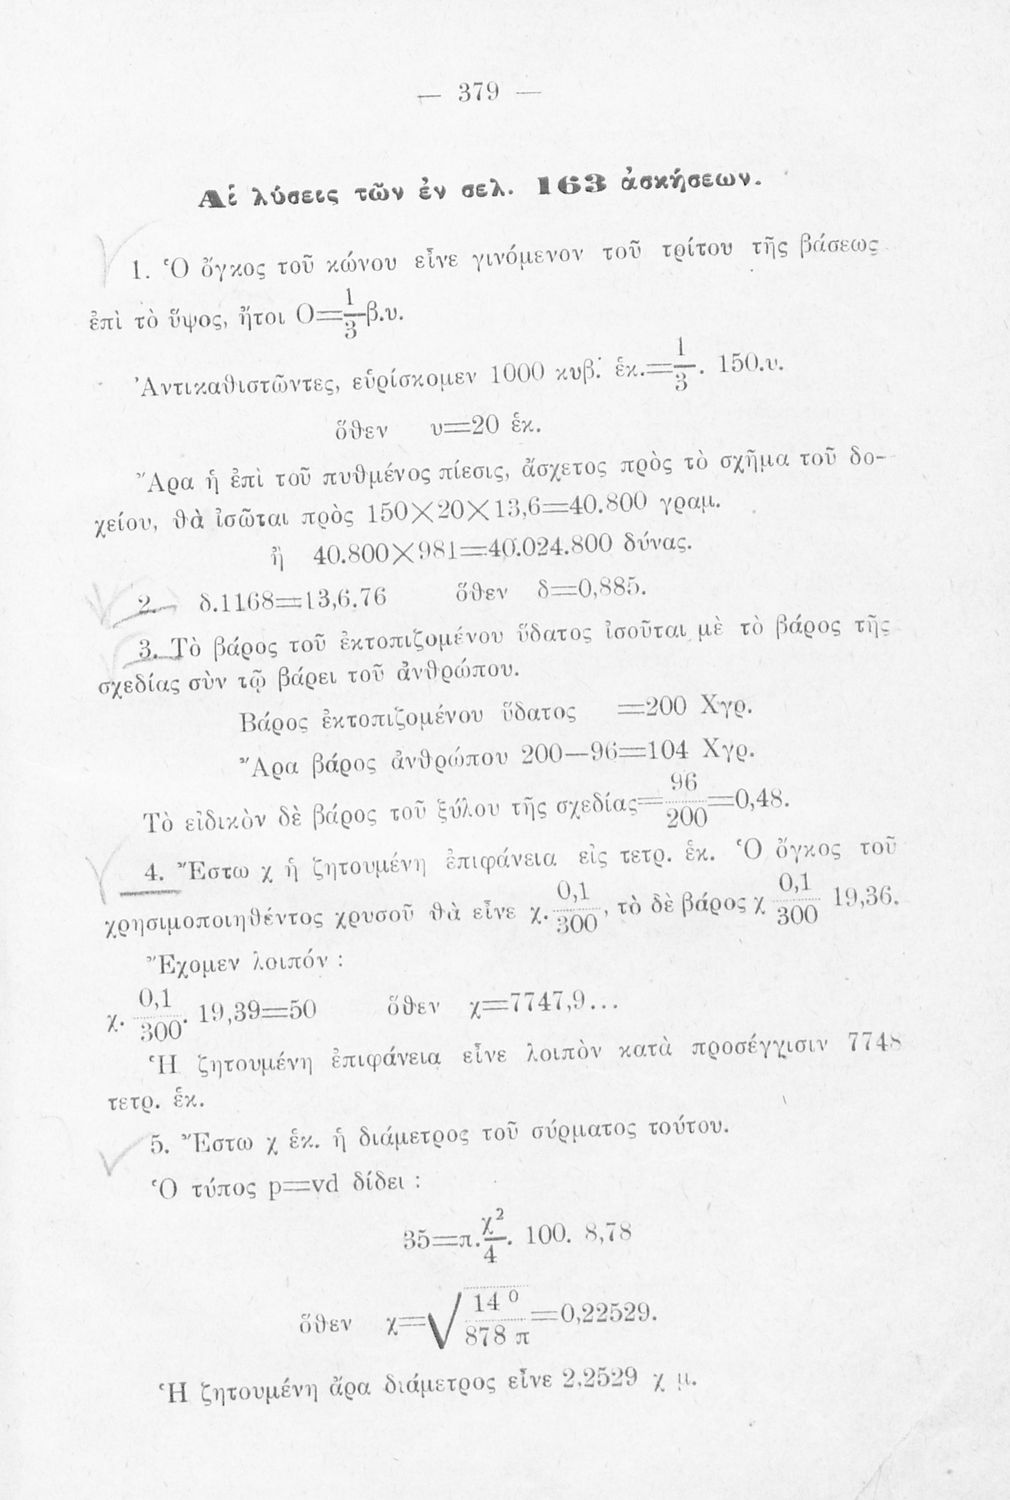 — 379 —
Αἱ λύσεις τῶν ἐν σελ. 163 ἀσκήσεων.
1. Ὁ ὄγκος τοῦ κώνου εἶνε γινόμενον τοῦ τρίτου τῆς βάσεως
ἐπὶ τὸ ὕψος, ἤτοι Ο=1/3 β.υ.
Ἀντικαθιστῶντες, εὑρίσκομεν 1000 κυβ. ἑκ.=1/3. 150.υ.
ὅθεν υ=20 ἑκ.
Ἄρα ἡ ἐπὶ τοῦ πυθμένος πίεσις, ἄσχετος πρὸς τὸ σχῆμα τοῦ δο-
χείου, θὰ ἰσῶται πρὸς 150×20×13,6=40.800 γραμ.
ἢ 40.800×981=40.024.800 δύνας.
2. δ.1168=13,6.76 ὅθεν δ=0,885.
3. Τὸ βάρος τοῦ ἐκτοπιζομένου ὕδατος ἰσοῦται μὲ τὸ βάρος τῆς
σχεδίας σὺν τῷ βάρει τοῦ ἀνθρώπου.
Βάρος ἐκτοπιζομένου ὕδατος =200 Χγρ.
Ἄρα βάρος ἀνθρώπου 200—96=104 Χγρ.
Τὸ εἰδικὸν δὲ βάρος τοῦ ξύλου τῆς σχεδίας=96/200=0,48.
4. Ἔστω χ ἡ ζητουμένη ἐπιφάνεια εἰς τετρ. ἑκ. Ὁ ὄγκος τοῦ
χρησιμοποιηθέντος χρυσοῦ θὰ εἶνε χ. 0,1/300, τὸ δὲ βάρος χ 0,1/300 19,36.
Ἔχομεν λοιπόν :
χ. 0,1/300. 19,39=50 ὅθεν χ=7747,9...
Ἡ ζητουμένη ἐπιφάνεια εἶνε λοιπὸν κατὰ προσέγγισιν 7748
τετρ. ἑκ.
5. Ἔστω χ ἑκ. ἡ διάμετρος τοῦ σύρματος τούτου.
Ὁ τύπος p=vd δίδει :
35=π.χ²/4. 100. 8,78
ὅθεν χ=√14 0/878 π=0,22529.
Ἡ ζητουμένη ἄρα διάμετρος εἶνε 2,2529 χ μ.